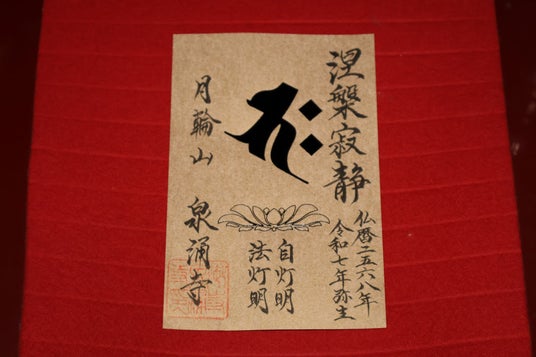 涅槃寂静
仏暦二五六八年
令和七年弥生
自灯明
法灯明
月輪山
泉涌寺